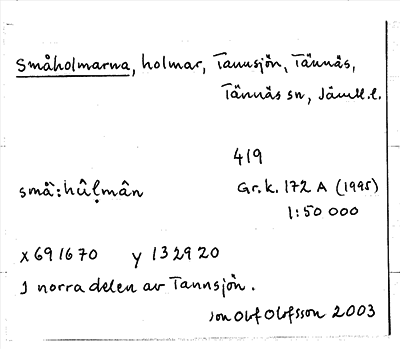 Småholmarna, holmar, Tannsjön, Tännäs,
Tännäs sn, Jämtl.l.
419
små:hûḷmân Gr.k. 172 A (1995)
1:50 000
x 691670 y 132920
I norra delen av Tannsjön.
Jon Olof Olofsson 2003